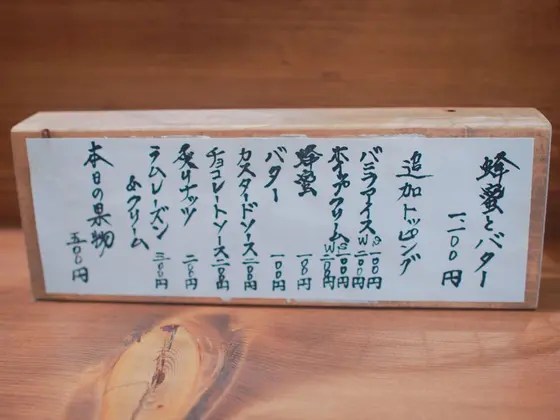 蜂蜜とバター
一二〇〇円
追加トッピング
バニラアイス
S一〇〇円
W二〇〇円
ホイップクリーム
S一〇〇円
W二〇〇円
蜂蜜 一〇〇円
バター 一〇〇円
カスタードソース 二〇〇円
チョコレートソース 二〇〇円
炙りナッツ 二〇〇円
ラムレーズン
&クリーム 三〇〇円
本日の果物 五〇〇円